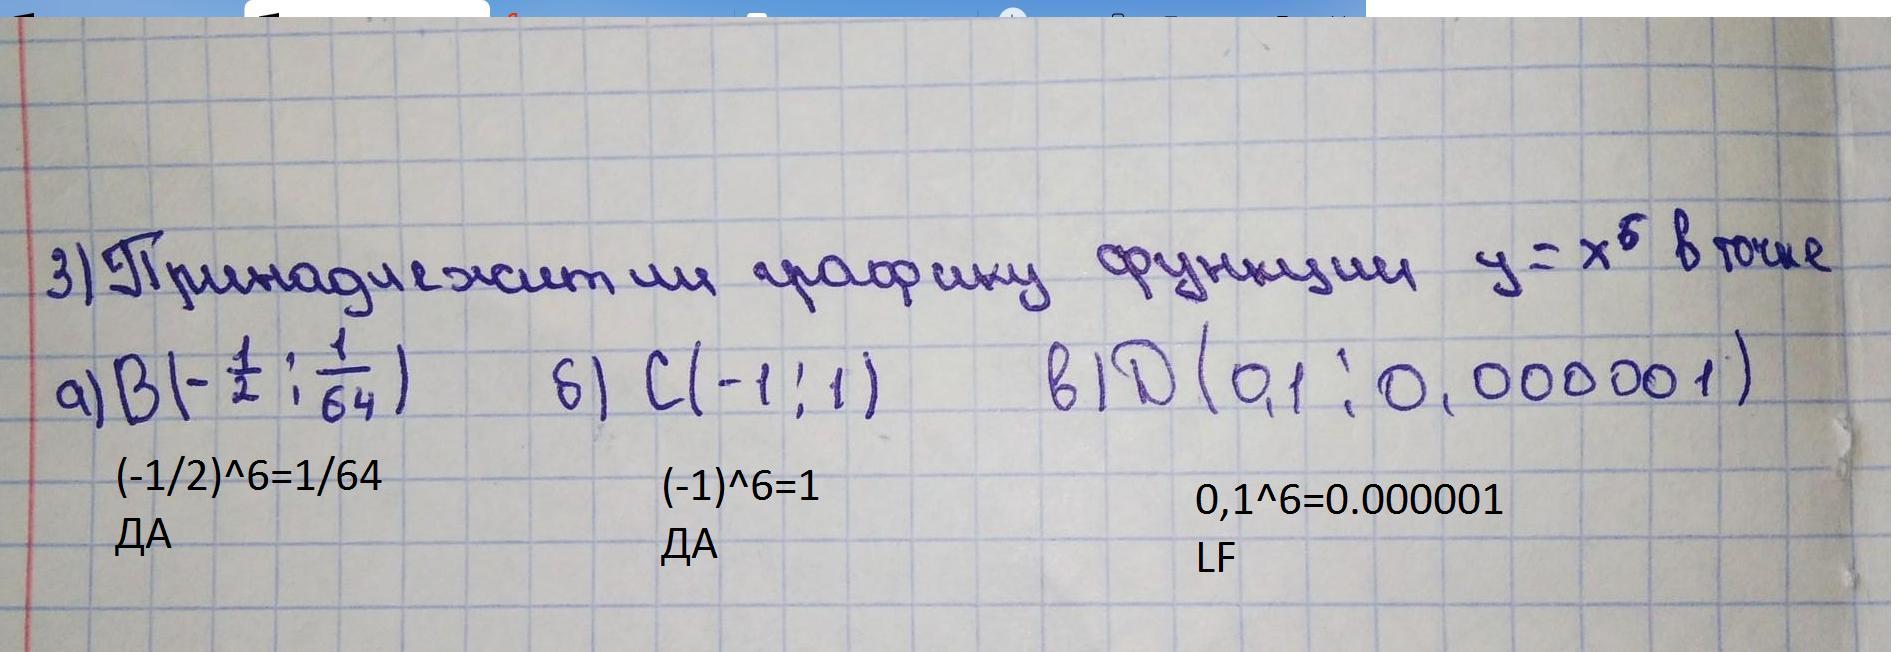 3) Принадлежит ли графику функции y = x⁶ в точке
а) B(-1/2 ; 1/64) б) C(-1 ; 1) в) D(0,1 ; 0,000001)
(-1/2)^6=1/64 (-1)^6=1 0,1^6=0.000001
ДА ДА LF